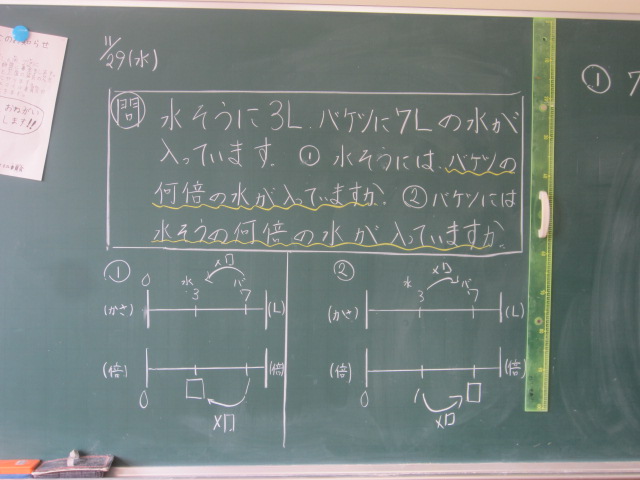 11/29(水)
問 水そうに3L、バケツに7Lの水が
入っています。① 水そうには、バケツの
何倍の水が入っていますか。②バケツには
水そうの何倍の水が入っていますか。
①
×□
0 水 バ
3 7
(かさ) (L)
(倍) (倍)
0 □ 1
×□
②
×□
水 バ
3 7
(かさ) (L)
(倍) (倍)
0 1 □
×□
① 7
おねがい
します!!